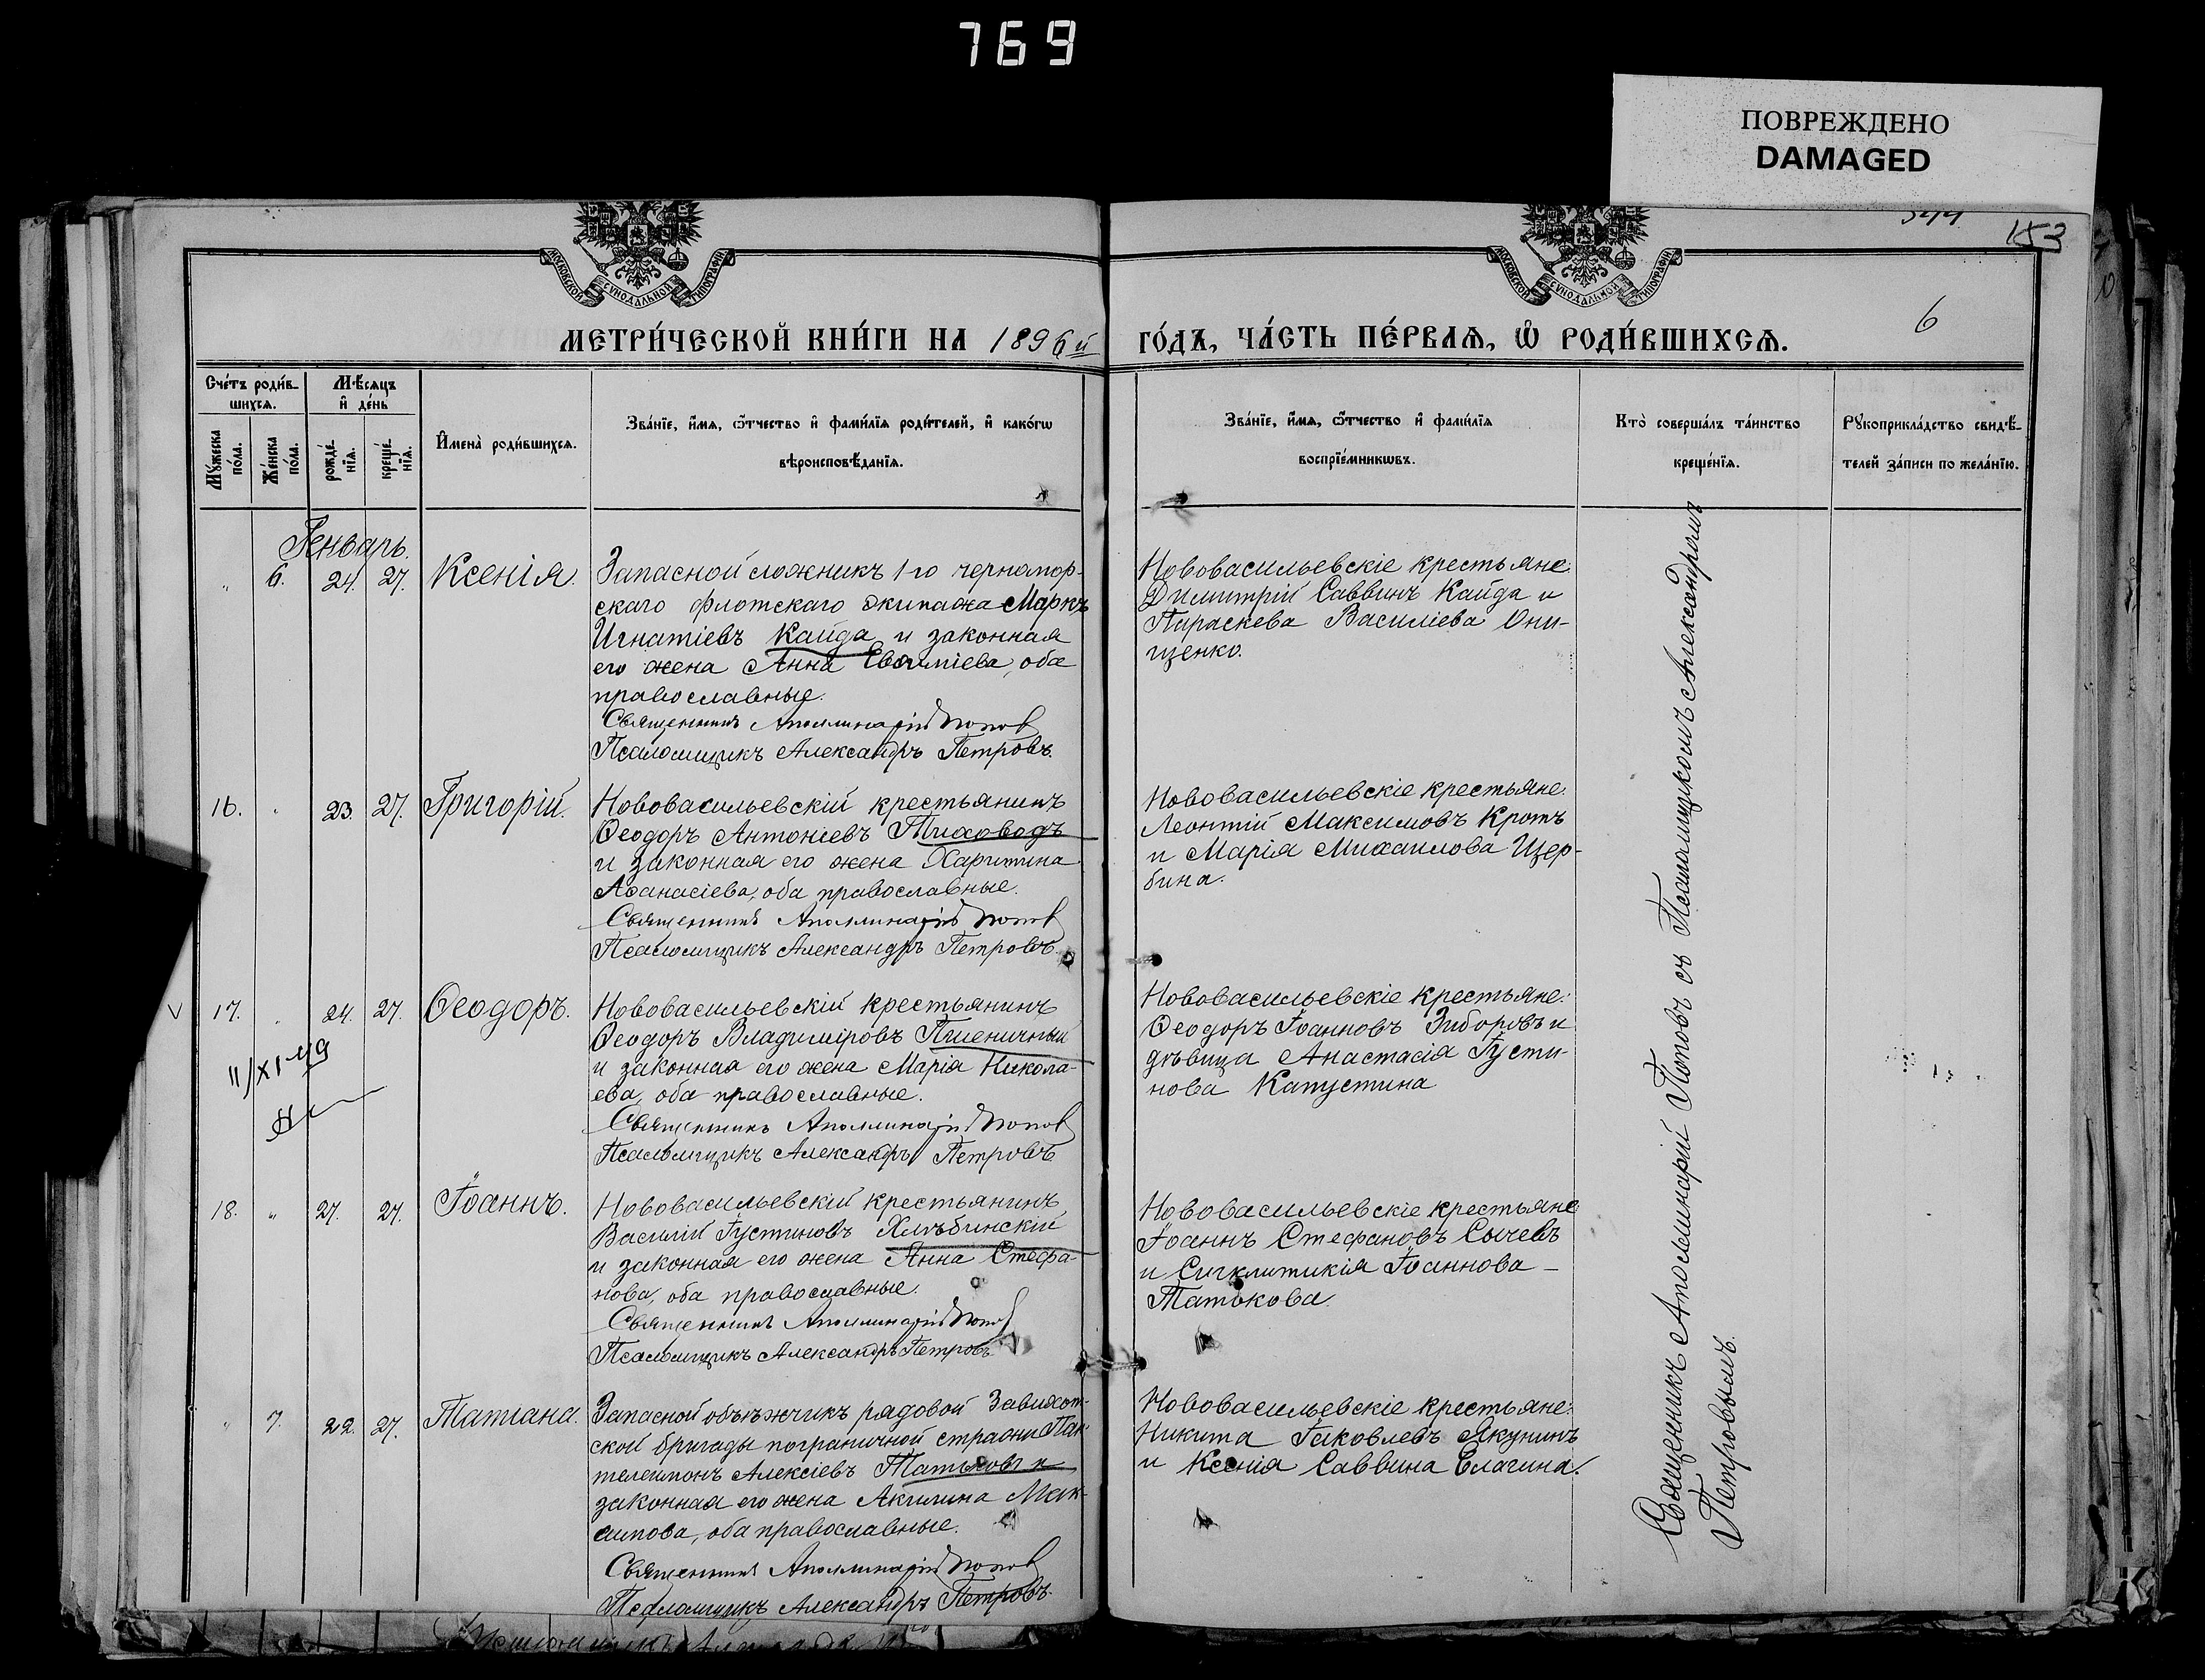 769
ПОВРЕЖДЕНО
DAMAGED
153
6
МОСКОВСКОЙ СѴНОДАЛЬНОЙ ТИПОГРАФІИ
МОСКОВСКОЙ СѴНОДАЛЬНОЙ ТИПОГРАФІИ
МЕТРИ́ЧЕСКОЙ КНИ́ГИ НА 1896й
ГО́ДЪ, ЧА́СТЬ ПЕ́РВАѦ, Ѡ҆ РОДИ́ВШИХСѦ.
Счетъ роди́в-
шихсѧ.
Мѣ́сѧцъ
и҆ де́нь
Мꙋ́жеска
по́ла.
Же́нска
по́ла.
рожде́-
нїѧ.
креще́-
нїѧ.
И҆мена̀ роди́вшихсѧ.
Зва́нїе, и҆́мѧ, ѻ҆́тчество и҆ фами́лїѧ роди́телей, и҆ како́гѡ
вѣроисповѣ́данїѧ.
Зва́нїе, и҆́мѧ, ѻ҆́тчество и҆ фами́лїѧ
воспрїе́мникѡвъ.
Кто̀ соверша́лъ та́инство
креще́нїѧ.
Рꙋкоприкла́дство свидѣ́-
телей за́писи по жела́нїю.
Генварь.
" 6. 24. 27. Ксенія.
Запасной 1-го черномор-
скаго флотскаго экипажа Маркъ
Игнатіевъ Кайда и законная
его жена Анна Евѳиміева, оба
православные.
Священникъ Аполлинарій Попов
Псаломщикъ Александръ Петровъ.
Нововасильевскіе крестьяне
Димитрій Саввинъ Кайда и
Параскева Василіева Они-
щенко.
16. " 23. 27. Григорій.
Нововасильевскій крестьянинъ
Ѳеодоръ Антоніевъ Тиховодъ
и законная его жена Харитина
Аѳанасіева, оба православные.
Священникъ Аполлинарій Попов
Псаломщикъ Александръ Петровъ.
Нововасильевскіе крестьяне
Леонтій Максимовъ Кротъ
и Марія Михаилова Щер-
бина.
17. " 24. 27. Ѳеодоръ.
11/XI-49
Нововасильевскій крестьянинъ
Ѳеодоръ Владиміровъ Пшеничный
и законная его жена Марія Никола-
ева, оба православные.
Священникъ Аполлинарій Попов
Псаломщикъ Александръ Петровъ
Нововасильевскіе крестьяне:
Ѳеодоръ Іоанновъ Зиборовъ и
дѣвица Анастасія Іусти-
нова Капустина
18. " 27. 27. Іоаннъ.
Нововасильевскій крестьянинъ
Василій Іустиновъ Хлѣбинскій
и законная его жена Анна Стефа-
нова, оба православные.
Священникъ Аполлинарій Попов
Псаломщикъ Александръ Петровъ
Нововасильевскіе крестьяне
Іоаннъ Стефановъ Сычевъ
и Сигклитикія Іоаннова
Татькова.
" 7. 22. 27. Татіана.
Запасной объѣжчикъ рядовой Завихот-
ской бригады пограничной стражи Пан-
телеимонъ Алексіевъ Татьковъ и
законная его жена Акилина Мак-
симова, оба православные.
Священникъ Аполлинарій Попов
Псаломщикъ Александръ Петровъ.
Нововасильевскіе крестьяне:
Никита Іаковлевъ Якунинъ
и Ксенія Саввина Елагина.
Священникъ Аполлинарій Поповъ съ Псаломщикомъ Александромъ
Петровымъ.